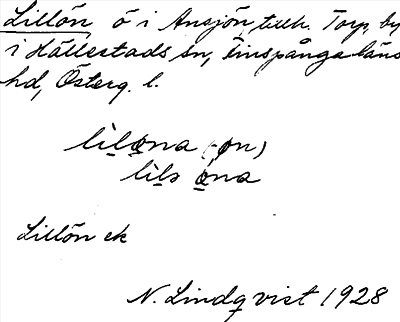 Lillön, ö i Ansjön, tillh. Torp, by
i Hällestads sn, Finspånga läns
hd, Österg. l.
lìløna (-øn)
lìlə ǿna
Lillön ek
N. Lindqvist 1928